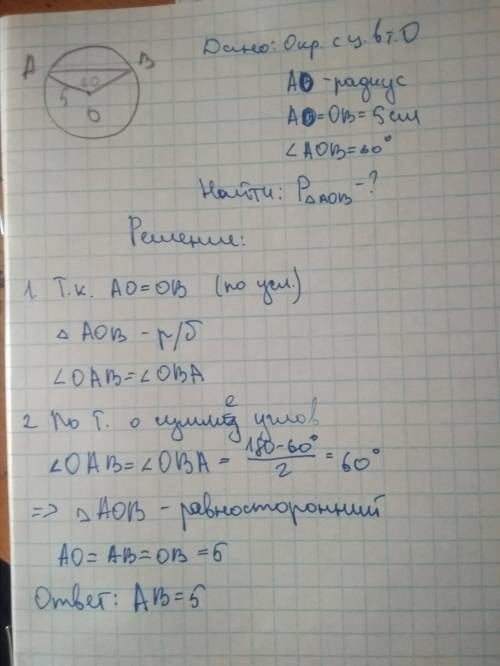 Дано: Окр. с ц. в т. О
A
B
60
5
O
АО - радиус
АО=ОВ=5см
∠АОВ=60°
Найти: P△AOB - ?
Решение:
1. Т.к. АО=ОВ (по усл.)
△ АОВ - р/б
∠ОАВ=∠ОВА
2 По т. о сумме углов
∠ОАВ=∠ОВА = 180-60°/2 = 60°
=> △ АОВ - равносторонний
АО=АВ=ОВ=5
Ответ: АВ=5